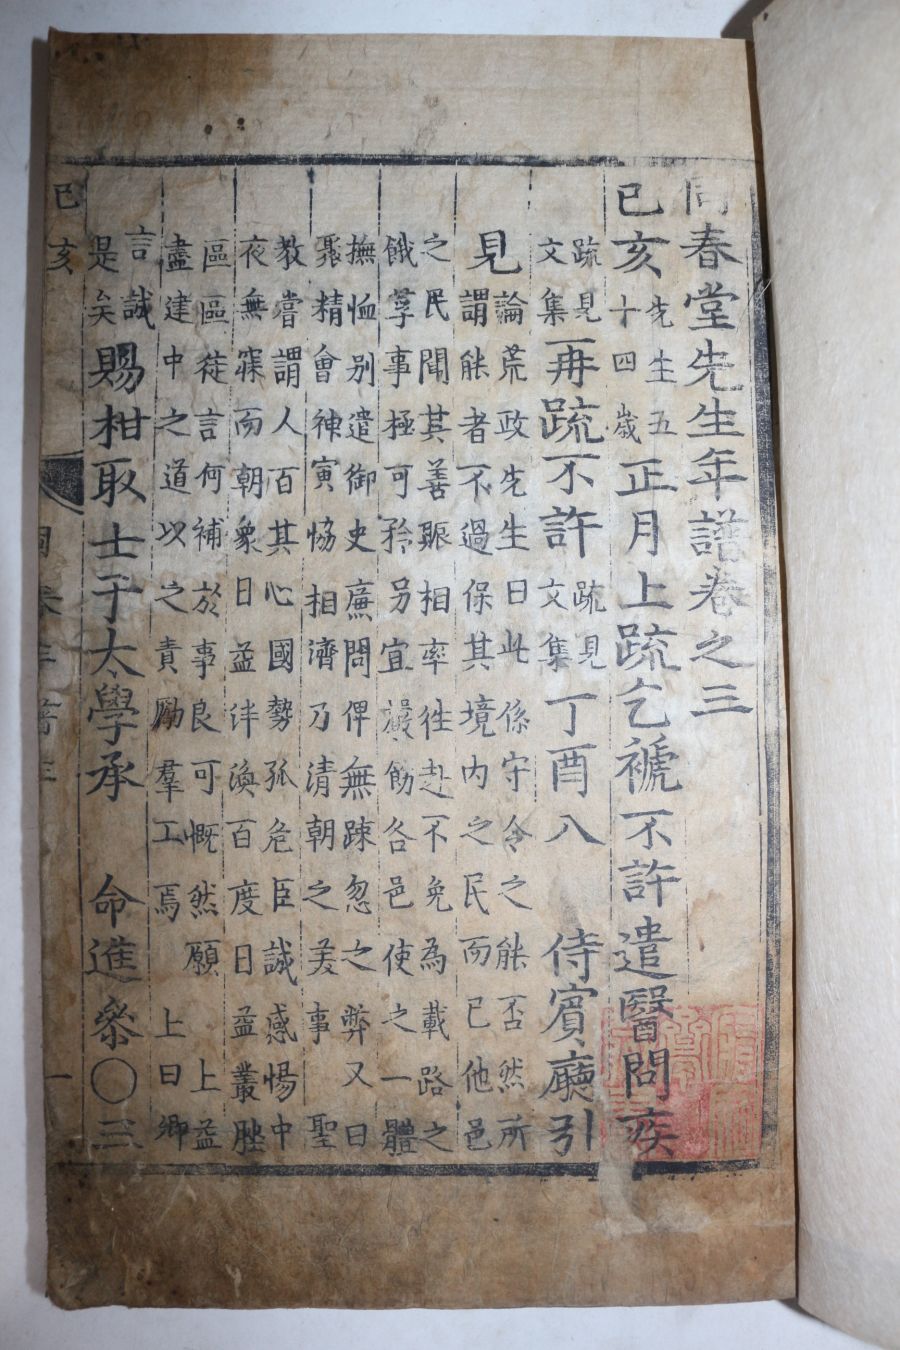 同春堂先生年譜卷之三
己亥先生五十四歲正月上疏乞褫不許遣醫問疾
疏見文集再疏不許疏見文集丁酉八 侍賓廳引
見論荒政先生曰此係守令之能否然所
謂能者不過保其境內之民而已他邑
之民聞其善賑相率徃赴不免為載路之
餓莩事極可矜另宜嚴飭各邑使之一體
撫恤别遣御史廉問俾無踈忽之弊又曰
聚精會神寅恊相濟乃清朝之羙事 聖
教嘗謂人百其心國勢孤危臣誠慼惕中
夜無寐而朝象日益泮渙百度日益叢脞
區區徒言何補於事良可慨然願 上益
盡建中之道以之責勵羣工焉 上曰卿
言誠是矣賜柑取士于太學承 命進參〇三
己亥
一